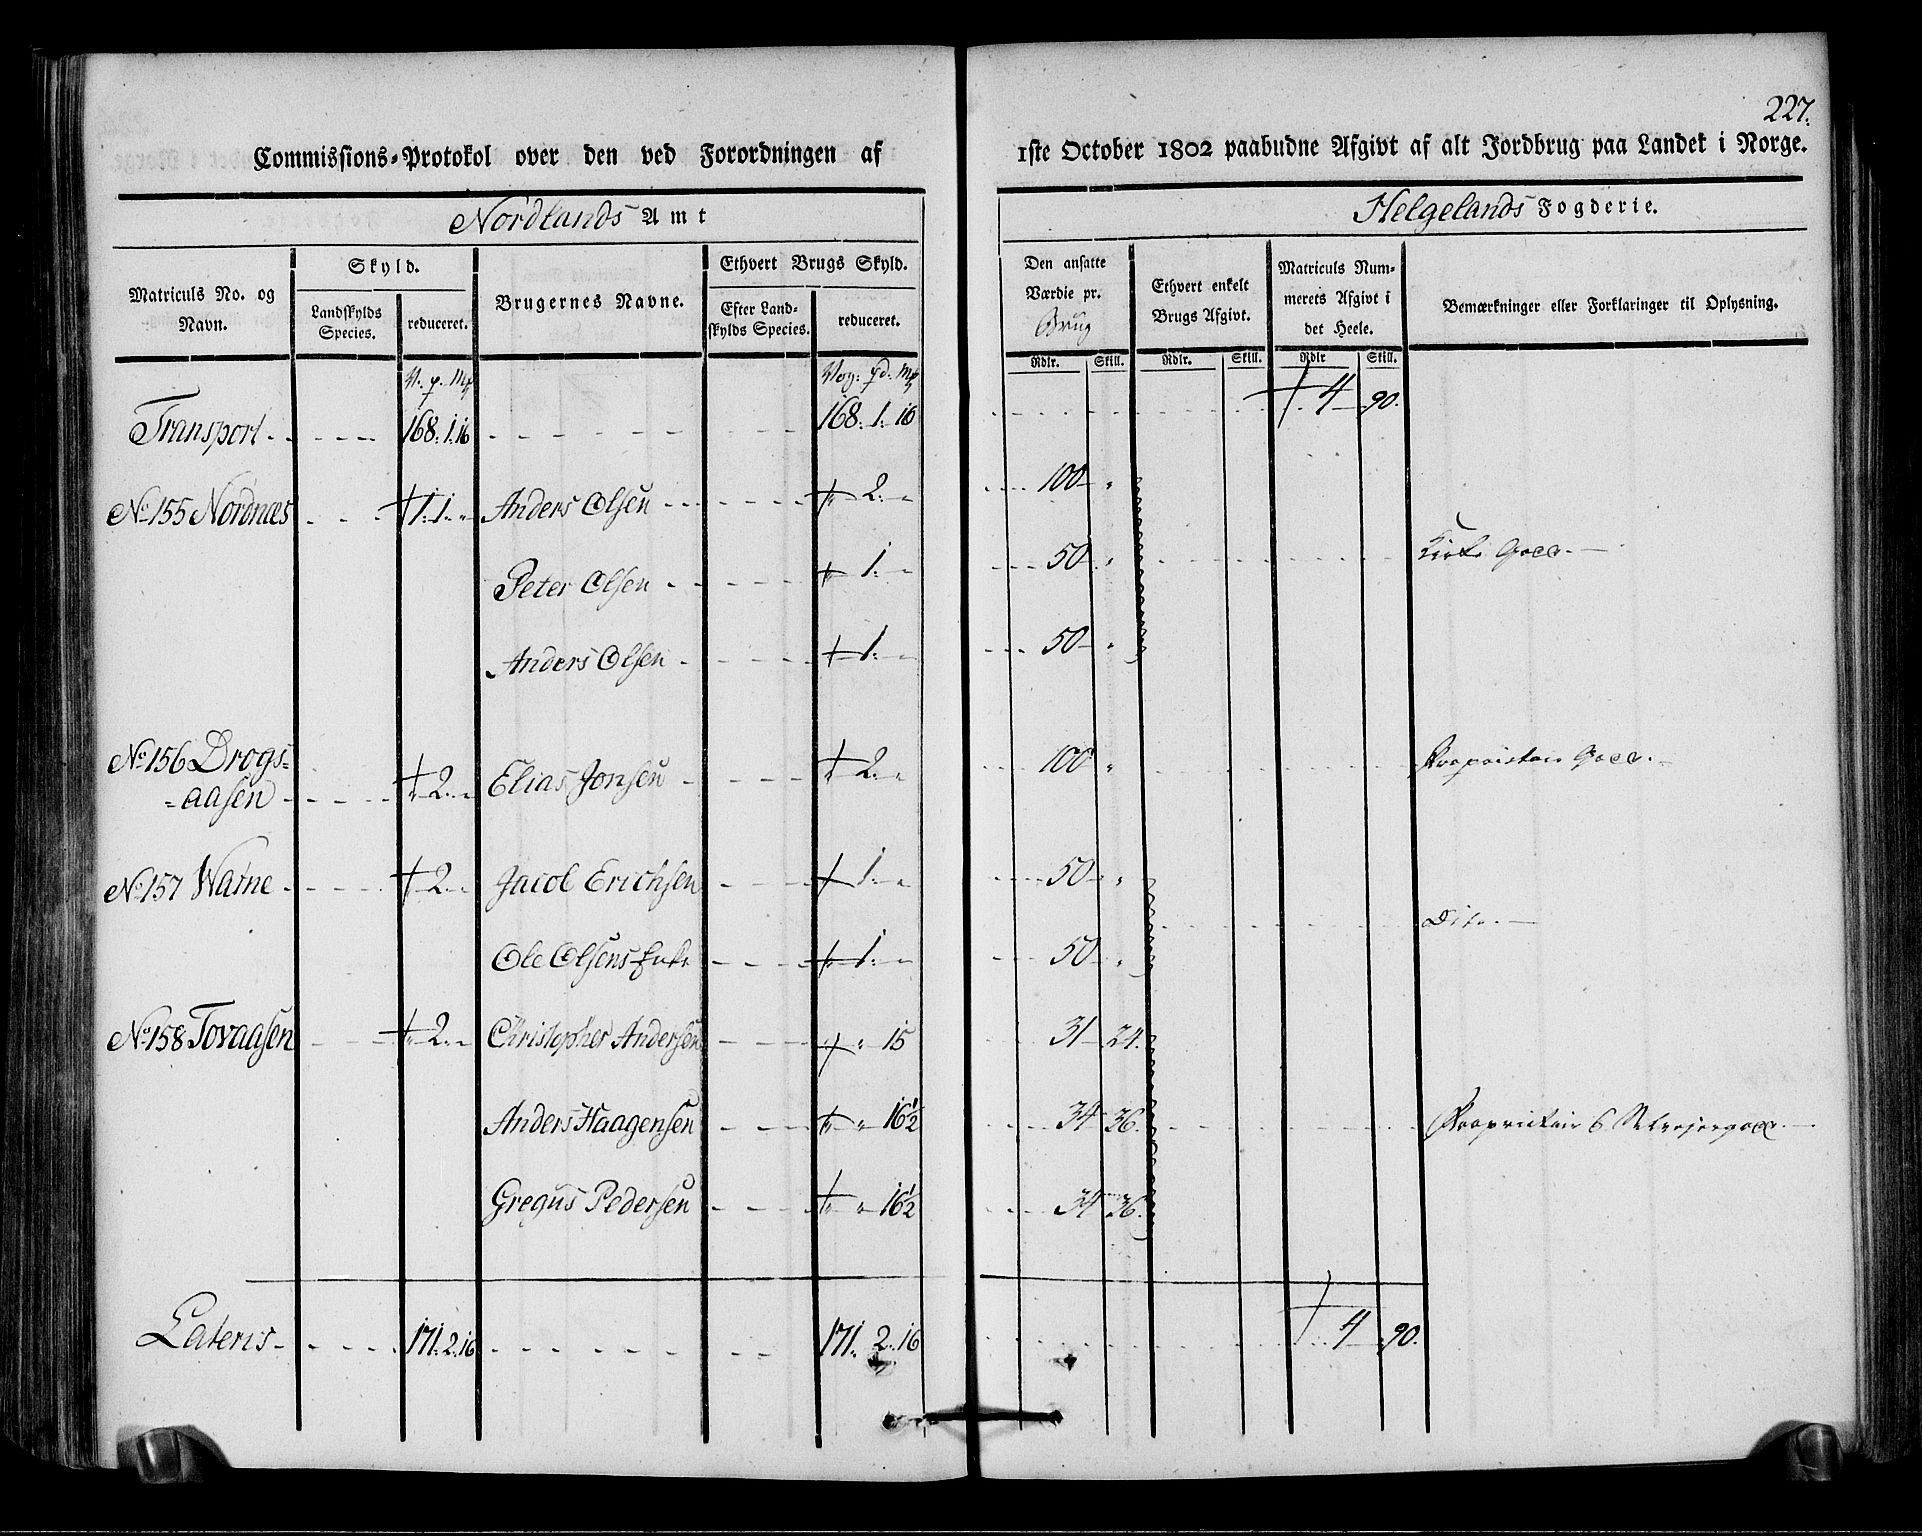 227.
Commissions-Protokol over den ved Forordningen af 1ste October 1802 paabudne Afgivt af alt Jordbrug paa Landet i Norge.
Nordlands Amt
Helgelands Fogderie.
Matriculs No. og Navn.
Skyld.
Landskylds Species.
reduceret.
Brugernes Navne.
Ethvert Brugs Skyld.
Efter Landskylds Species.
reduceret.
Den ansatte Værdie pr. Brug
Rdlr. Skill.
Ethvert enkelt Brugs Afgivt.
Rdlr. Skill.
Matriculs Nummerets Afgivt i det Heele.
Rdlr Skill.
Bemærkninger eller Forklaringer til Oplysning.
V. p. Mk Vog: pd. Mk
Transport 168. 1. 16 168. 1. 16 4 90.
No 155 Nordnæs 1. 1. " Anders Olsen 2. " 100 "
Peter Olsen 1. " 50 " Kirke Goes.
Anders Olsen 1. " 50 "
No 156 Drogs=
=aasen 2. " Elias Jonsen 2. " 100 " Proprietair Goes.
No 157 Warne 2. " Jacob Erichsen 1. " 50 "
Dito.
Ole Olsens Enke 1. " 50 "
No 158 Tovaasen 2. " Christopher Andersen " 15 31 24.
Anders Haagensen " 16½ 34 36. Proprietair & Selvejergoes.
Gregus Pedersen " 16½ 34 36.
Lateris 171. 2. 16 171. 2. 16 4 90.